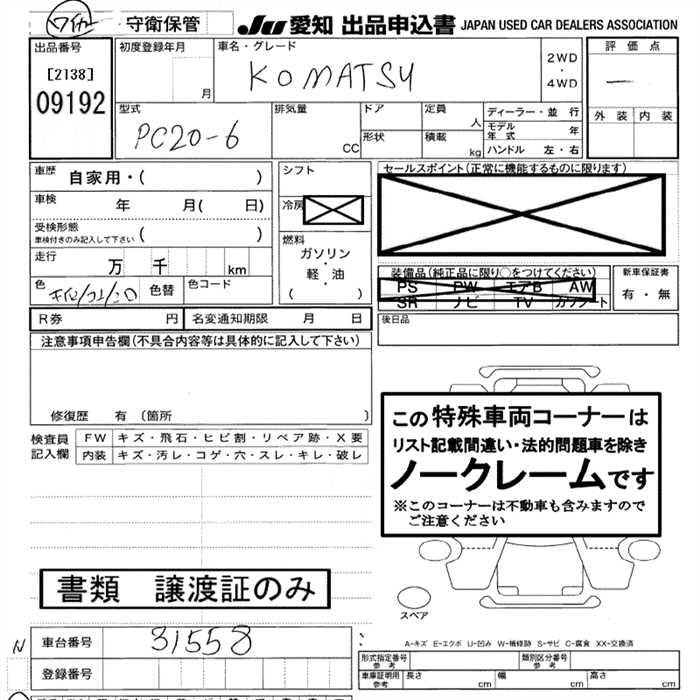 ワイヤー 守衛保管 JU 愛知 出品申込書 JAPAN USED CAR DEALERS ASSOCIATION
出品番号 初度登録年月 車名・グレード 2WD・4WD 評価点
[2138]
09192 月 KOMATSU —
外装 内装
型式 排気量 ドア 定員 ディーラー・並行
PC20-6 CC 形状 人 積載 kg モデル年式 年
ハンドル 左・右
車歴 自家用・( ) シフト セールスポイント(正常に機能するものに限ります)
車検 年 月( 日) 冷房
受検形態
車検付きのみ記入して下さい ( ) 燃料
走行 万 千 km ガソリン・軽・油 ( )
装備品(純正品に限り○をつけてください) 新車保証書
PS PW エアB AW 有・無
SR ナビ TV カワシート
色 色替 色コード
R券 円 名変通知期限 月 日 後日品
注意事項申告欄(不具合内容等は具体的に記入して下さい)
修復歴 有 (箇所 )
この特殊車両コーナーは
リスト記載間違い・法的問題車を除き
ノークレームです
※このコーナーは不動車も含みますので
ご注意ください
検査員記入欄 FW キズ・飛石・ヒビ割・リペア跡・X要
内装 キズ・汚レ・コゲ・穴・スレ・キレ・破レ
書類 譲渡証のみ
スペア
N 車台番号 31558
A-キズ E-エクボ U-凹み W-補修跡 S-サビ C-腐食 XX-交換済
登録番号
形式指定番号 参考 類別区分番号 参考
車庫証明用 参考 長さ cm 幅 cm 高さ cm